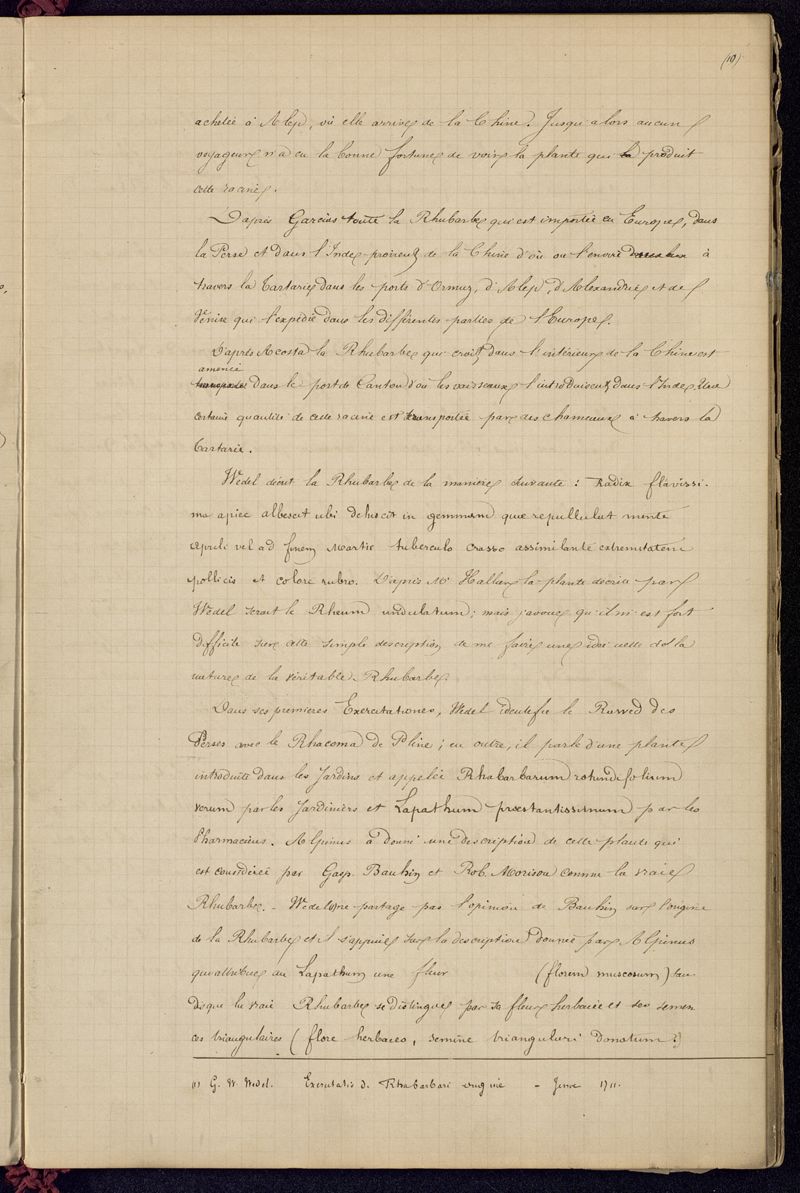 (10)
achetée à Alep, où elle arrive de la Chine. Jusqu'alors aucun
voyageur n'a eu la bonne fortune de voir la plante qui la produit
cette racine.
D'après Garcias toute la Rhubarbe qui est importée en Europe, dans
la Perse et dans l'Inde provient de la Chine d'où on l'envoie à
travers la Tartarie dans les ports d'Ormuz, d'Alep, d'Alexandrie et de
Venise qui l'expédie dans les différentes parties de l'Europe.
D'après Acosta la Rhubarbe qui croit dans l'intérieur de la Chine est
amenée
transportée dans le port de Canton d'où les vaisseaux l'introduisent dans l'Inde. Une
certaine quantité de cette racine est transportée par des chameaux à travers la
Tartarie.
Wedel décrit la Rhubarbe de la manière suivante : Radix flavissi-
ma apice albescit ubi dehiscit in gemmam quæ repullulat mente
Aprili vel ad finem Martii tuberculo crasso assimilante extremitatem
pollicis et colore rubro. D'après Mr Haller la plante décrite par
Wedel serait le Rheum undulatum ; mais j'avoue qu'il m'est fort
difficile sur cette simple description de me faire une idée nette de la
nature de la véritable Rhubarbe.
Dans ses premières Exercitationes, Wedel identifie le Rawed des
Perses avec le Rhacoma de Pline ; en outre, il parle d'une plante
introduite dans les Jardins et appelée Rhabarbarum rotundifolium
verum par les Jardiniers et Lapathum præstantissimum par les
Pharmaciens. Alpinus a donné une description de cette plante qui
est considérée par Gasp. Bauhin et Rob. Morison comme la vraie
Rhubarbe. - Wedel ne partage pas l'opinion de Bauhin sur l'origine
de la Rhubarbe et il s'appuie sur la description donnée par Alpinus
qui attribue au Lapathum une fleur (florem muscosum) tan
dis que la vraie Rhubarbe se distingue par sa fleur herbacée et ses semen
ces triangulaires (flore herbaceo, semine triangulari donatum.)
(1) G. W. Wedel. Exercitatio d. Rhabarbari origine - Jenæ 1711.